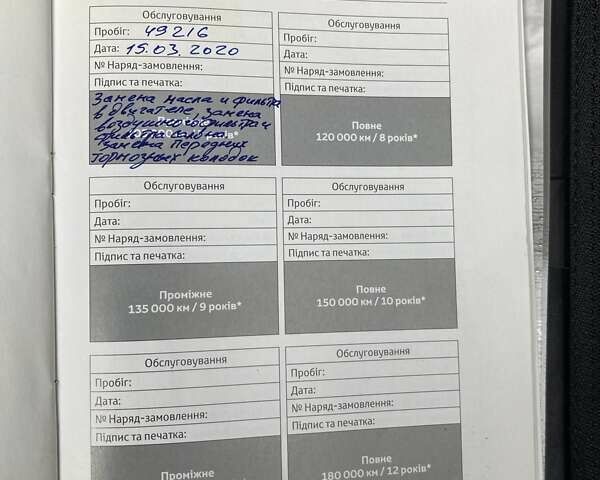 Обслуговування
Пробіг: 49216
Дата: 15.03.2020
№ Наряд-замовлення:
Підпис та печатка:
Замена масла и фильтра
в двигателе, замена
воздушного фильтра и
фильтра салона
Замена Передних
тормозных колодок
Обслуговування
Пробіг:
Дата:
№ Наряд-замовлення:
Підпис та печатка:
Повне
120 000 км / 8 років*
Обслуговування
Пробіг:
Дата:
№ Наряд-замовлення:
Підпис та печатка:
Проміжне
135 000 км / 9 років*
Обслуговування
Пробіг:
Дата:
№ Наряд-замовлення:
Підпис та печатка:
Повне
150 000 км / 10 років*
Обслуговування
Пробіг:
Дата:
№ Наряд-замовлення:
Підпис та печатка:
Проміжне
Обслуговування
Пробіг:
Дата:
№ Наряд-замовлення:
Підпис та печатка:
Повне
180 000 км / 12 років*